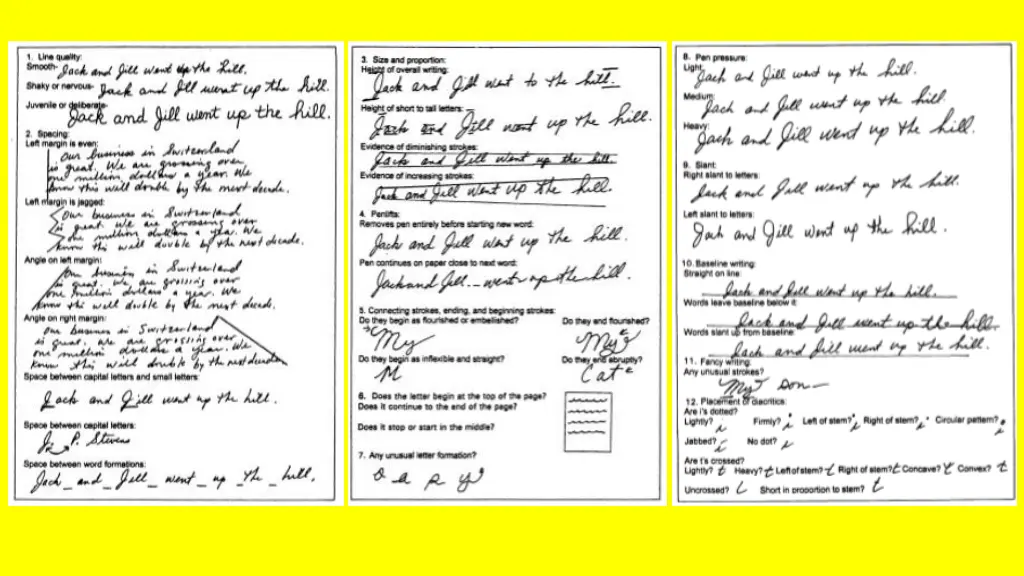 1. Line quality:
Smooth- Jack and Jill went up the hill.
Shaky or nervous- Jack and Jill went up the hill.
Juvenile or deliberate- Jack and Jill went up the hill.
2. Spacing:
Left margin is even:
Our business in Switzerland
is great. We are grossing over
one million dollars a year. We
know this will double by the next decade.
Left margin is jagged:
Our business in Switzerland
is great. We are grossing over
one million dollars a year. We
know this will double by the next decade.
Angle on left margin:
Our business in Switzerland
is great. We are grossing over
one million dollars a year. We
know this will double by the next decade.
Angle on right margin:
Our business in Switzerland
is great. We are grossing over
one million dollars a year. We
know this will double by the next decade.
Space between capital letters and small letters:
Jack and Jill went up the hill.
Space between capital letters:
J. P. Stevens
Space between word formations:
Jack _ and _ Jill _ went _ up _ the _ hill.
3. Size and proportion:
Height of overall writing:
Jack and Jill went to the hill.
Height of short to tall letters:
Jack and Jill went up the hill.
Evidence of diminishing strokes:
Jack and Jill went up the hill.
Evidence of increasing strokes:
Jack and Jill went up the hill.
4. Penlifts:
Removes pen entirely before starting new word:
Jack and Jill went up the hill.
Pen continues on paper close to next word:
Jack and Jill went up the hill.
5. Connecting strokes, ending, and beginning strokes:
Do they begin as flourished or embellished? Do they end flourished?
My My
Do they begin as inflexible and straight? Do they end abruptly?
M Cat
6. Does the letter begin at the top of the page?
Does it continue to the end of the page?
Does it stop or start in the middle?
7. Any unusual letter formation?
a p y
8. Pen pressure:
Light:
Jack and Jill went up the hill.
Medium:
Jack and Jill went up the hill.
Heavy:
Jack and Jill went up the hill.
9. Slant:
Right slant to letters:
Jack and Jill went up the hill.
Left slant to letters:
Jack and Jill went up the hill.
10. Baseline writing:
Straight on line:
Jack and Jill went up the hill.
Words leave baseline below it:
Jack and Jill went up the hill.
Words slant up from baseline:
Jack and Jill went up the hill.
11. Fancy writing:
Any unusual strokes?
My son
12. Placement of diacritics:
Are i's dotted?
Lightly? i Firmly? i Left of stem? i Right of stem? i Circular pattern? i
Jabbed? i No dot? i
Are t's crossed?
Lightly? t Heavy? t Left of stem? t Right of stem? t Concave? t Convex? t
Uncrossed? Short in proportion to stem? t